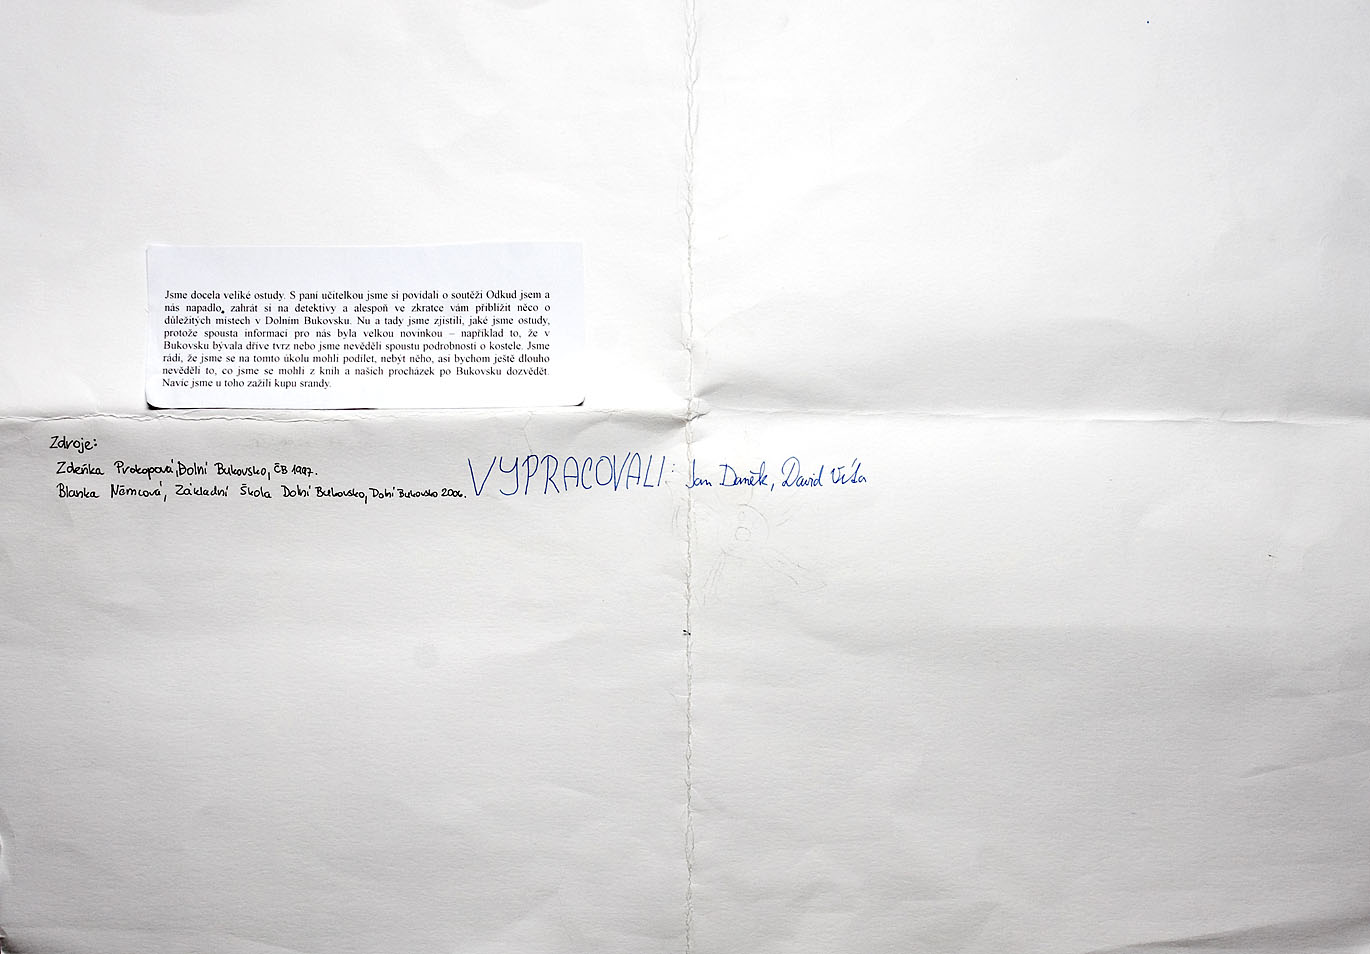 Jsme docela veliké ostudy. S paní učitelkou jsme si povídali o soutěži Odkud jsem a
nás napadlo, zahrát si na detektivy a alespoň ve zkratce vám přiblížit něco o
důležitých místech v Dolním Bukovsku. Nu a tady jsme zjistili, jaké jsme ostudy,
protože spousta informací pro nás byla velkou novinkou – například to, že v
Bukovsku bývala dříve tvrz nebo jsme nevěděli spoustu podrobností o kostele. Jsme
rádi, že jsme se na tomto úkolu mohli podílet, nebýt něho, asi bychom ještě dlouho
nevěděli to, co jsme se mohli z knih a našich procházek po Bukovsku dozvědět.
Navíc jsme u toho zažili kupu srandy.
Zdroje:
Zdeňka Prokopová, Dolní Bukovsko, ČB 1997.
Blanka Němcová, Základní Škola Dolní Bukovsko, Dolní Bukovsko 2006.
VYPRACOVALI: Jan Daněk, David Víša